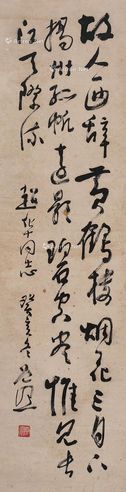 故人西辞黄鹤楼烟花三月下
扬州孤帆远影碧空尽惟见长
江天际流
同志 癸亥冬